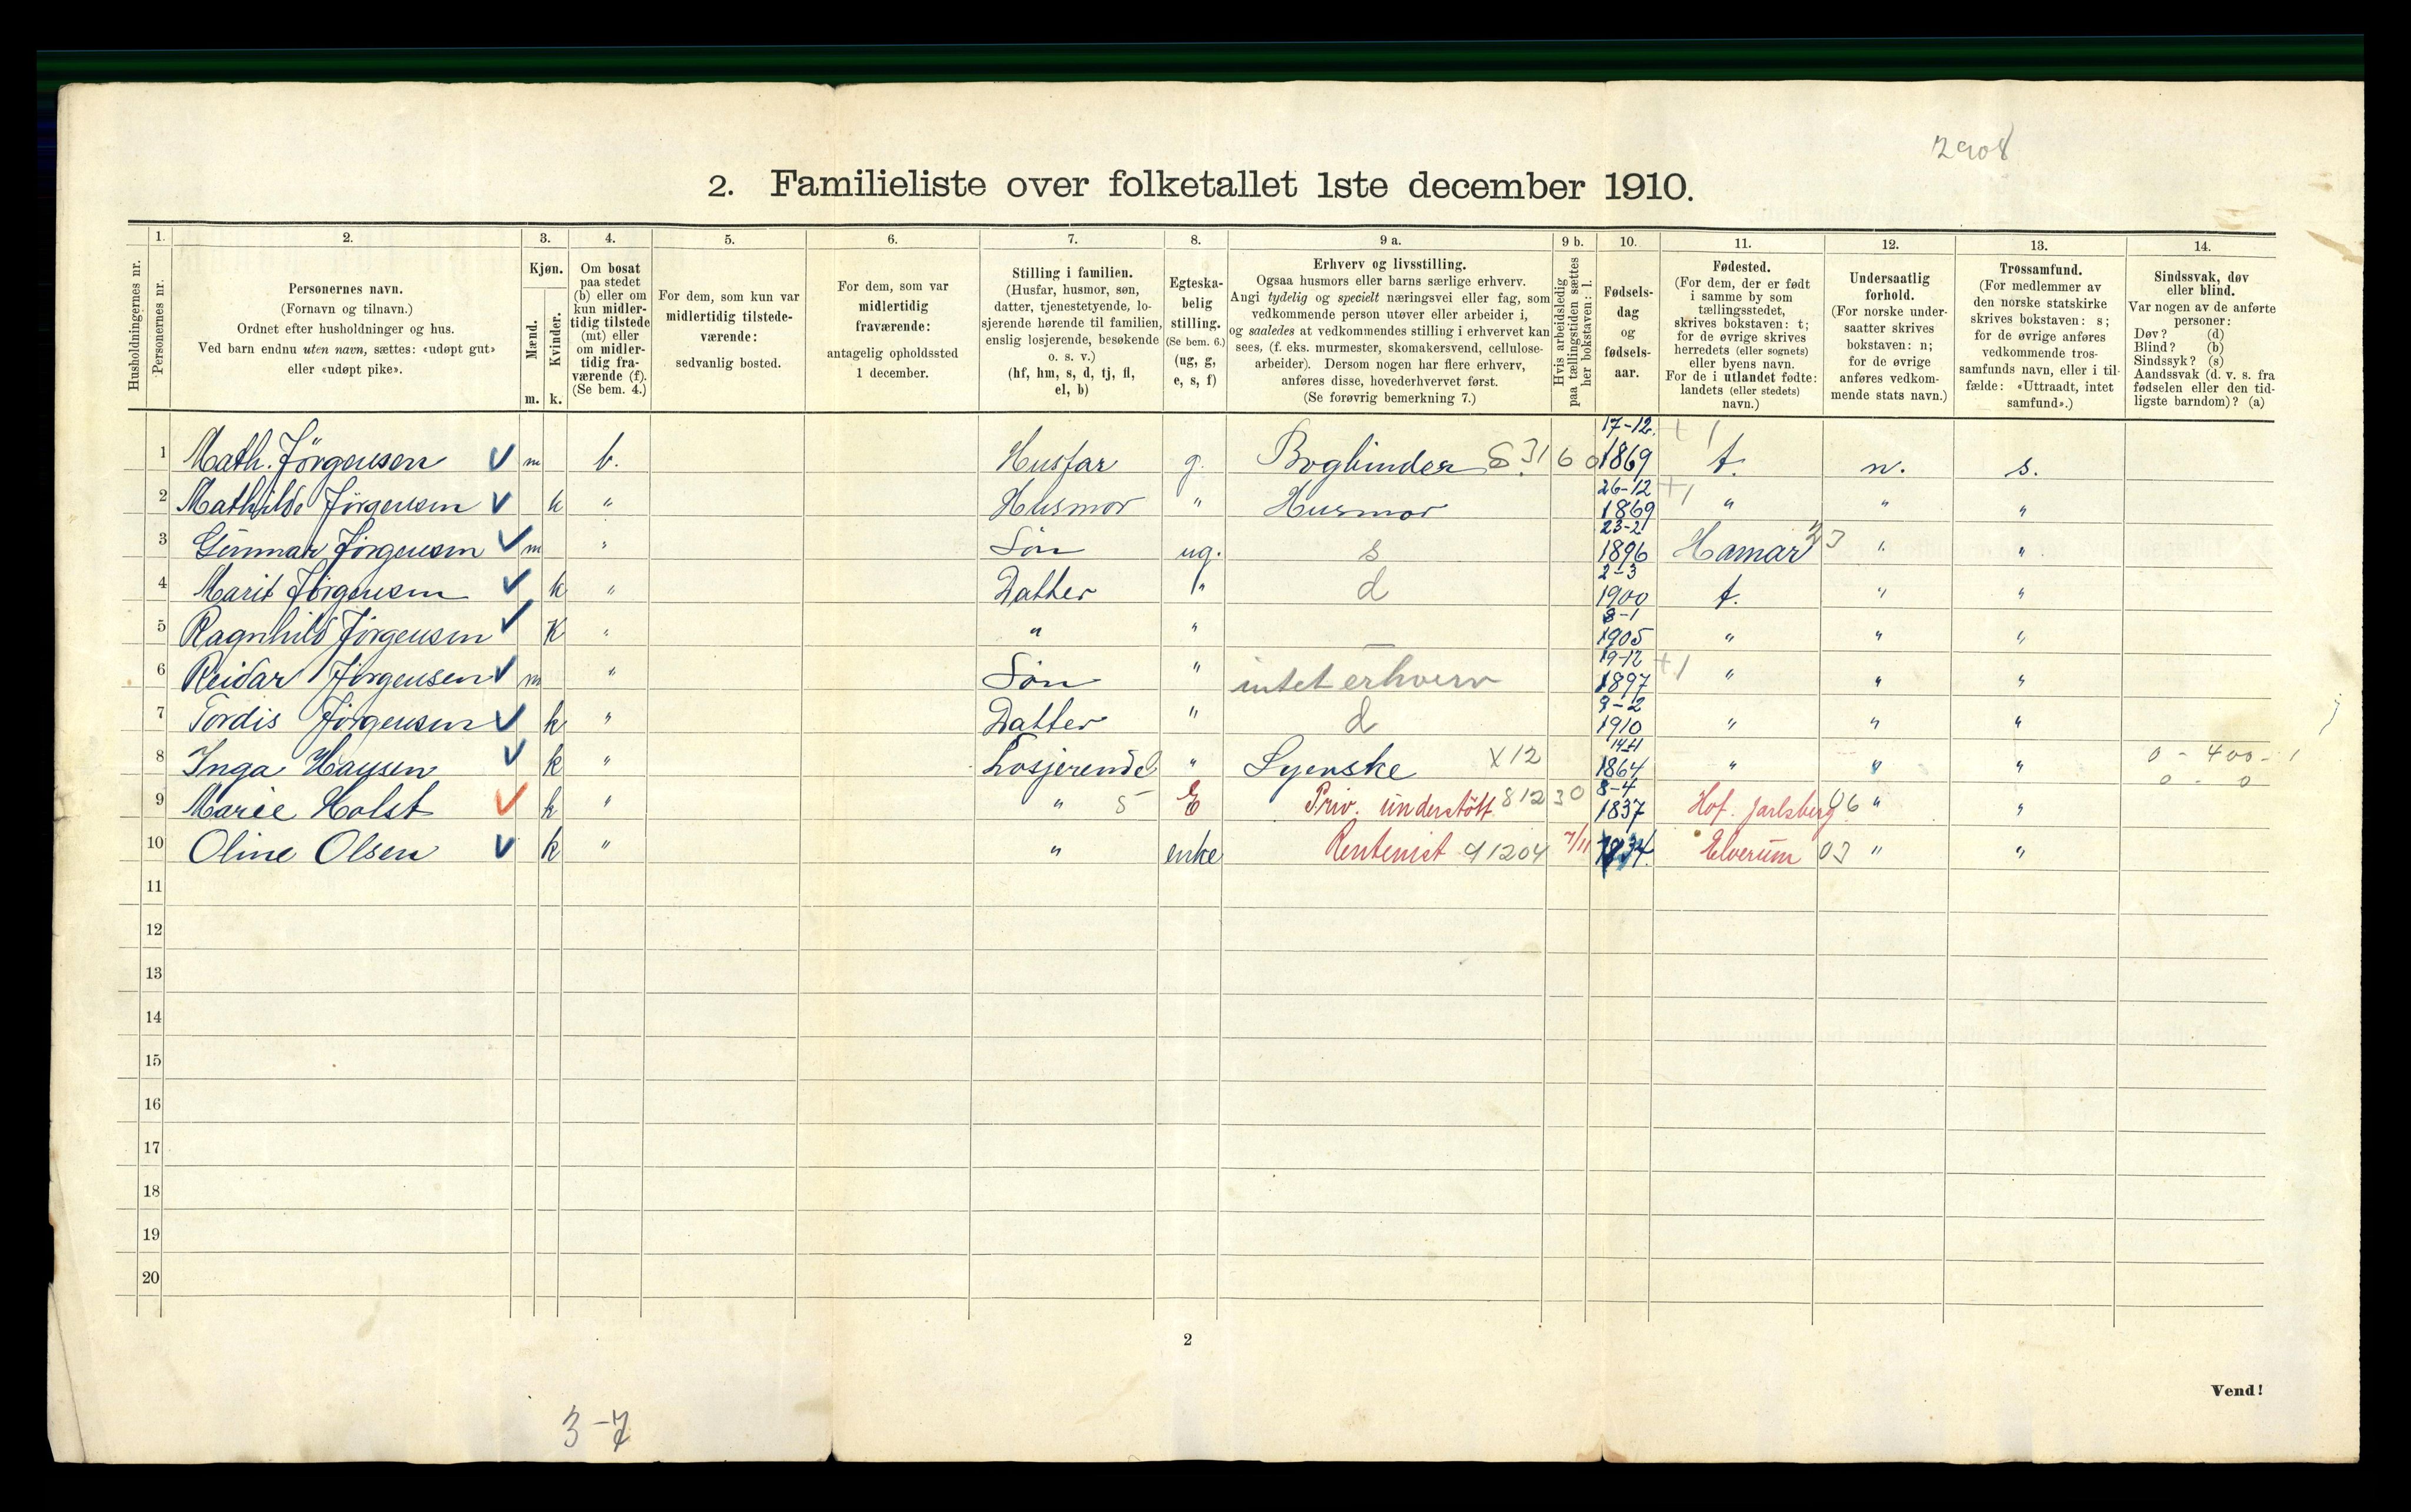 2908
2. Familieliste over folketallet 1ste december 1910.
Husholdningernes nr.
1. Personernes nr.
2. Personernes navn.
(Fornavn og tilnavn.)
Ordnet efter husholdninger og hus.
Ved barn endnu uten navn, sættes: «udøpt gut»
eller «udøpt pike».
3. Kjøn.
Mænd. m.
Kvinder. k.
4. Om bosat
paa stedet
(b) eller om
kun midler-
tidig tilstede
(mt) eller
om midler-
tidig fra-
værende (f).
(Se bem. 4.)
5. For dem, som kun var
midlertidig tilstede-
værende:
sedvanlig bosted.
6. For dem, som var
midlertidig
fraværende:
antagelig opholdssted
1 december.
7. Stilling i familien.
(Husfar, husmor, søn,
datter, tjenestetyende, lo-
sjerende hørende til familien,
enslig losjerende, besøkende
o. s. v.)
(hf, hm, s, d, tj, fl,
el, b)
8. Egteska-
belig
stilling.
(Se bem. 6.)
(ug, g,
e, s, f)
9 a. Erhverv og livsstilling.
Ogsaa husmors eller barns særlige erhverv.
Angi tydelig og specielt næringsvei eller fag, som
vedkommende person utøver eller arbeider i,
og saaledes at vedkommendes stilling i erhvervet kan
sees, (f. eks. murmester, skomakersvend, cellulose-
arbeider). Dersom nogen har flere erhverv,
anføres disse, hovederhvervet først.
(Se forøvrig bemerkning 7.)
9 b. Hvis arbeidsledig
paa tællingstiden sættes
her bokstaven: l.
10. Fødsels-
dag
og
fødsels-
aar.
11. Fødested.
(For dem, der er født
i samme by som
tællingsstedet,
skrives bokstaven: t;
for de øvrige skrives
herredets (eller sognets)
eller byens navn.
For de i utlandet fødte:
landets (eller stedets)
navn.)
12. Undersaatlig
forhold.
(For norske under-
saatter skrives
bokstaven: n;
for de øvrige
anføres vedkom-
mende stats navn.)
13. Trossamfund.
(For medlemmer av
den norske statskirke
skrives bokstaven: s;
for de øvrige anføres
vedkommende tros-
samfunds navn, eller i til-
fælde: «Uttraadt, intet
samfund».)
14. Sindssvak, døv
eller blind.
Var nogen av de anførte
personer:
Døv? (d)
Blind? (b)
Sindssyk? (s)
Aandssvak (d. v. s. fra
fødselen eller den tid-
ligste barndom)? (a)
1 Math. Jörgensen m b. Husfar g. Bogbinder 17-12. 1869 t. n. s.
2 Mathilde Jörgensen k " Husmor " Husmor 26-12 1869 +1 " " "
3 Gunnar Jörgensen m " Sön ug. s 23-2 1896 Hamar " "
4 Marit Jörgensen k " Datter " d 2-3 1900 t. " "
5 Ragnhild Jörgensen K " " " 8-1 1905 " " "
6 Reidar Jörgensen m " Sön " intet erhverv 19-12 1897 +1 " " "
7 Tordis Jörgensen k " Datter " d 9-2 1910 " " "
8 Inga Hansen k " Losjerende " Syerske X12 1864 " " " 0 - 400 - 1
9 Marie Holst k " " 5 E Priv. understött. 812 30 8-4 1837 Hof. Jarlsberg 06 " " 0 - 0
10 Oline Olsen k " " enke Rentenist 91204 7/11 1834. Elverum 03 " "
11
12
13
14
15
16
17
18
19
20
2
Vend!
3-7